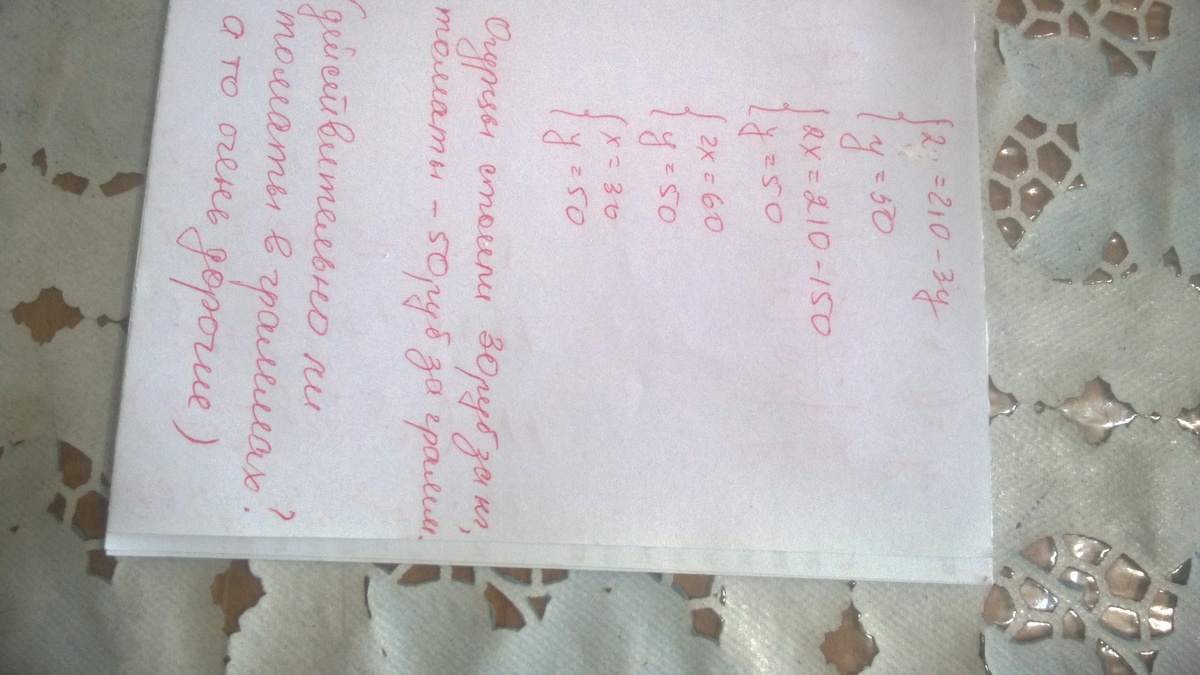 { 2 = 210 - 3y
{ y = 50
{ 2x = 210 - 150
{ y = 50
{ 2x = 60
{ y = 50
{ x = 30
{ y = 50
Огурцы стоят 30руб за кг,
томаты - 50руб за грамм.
(действительно ли
томаты в граммах?
а то очень дорогие)